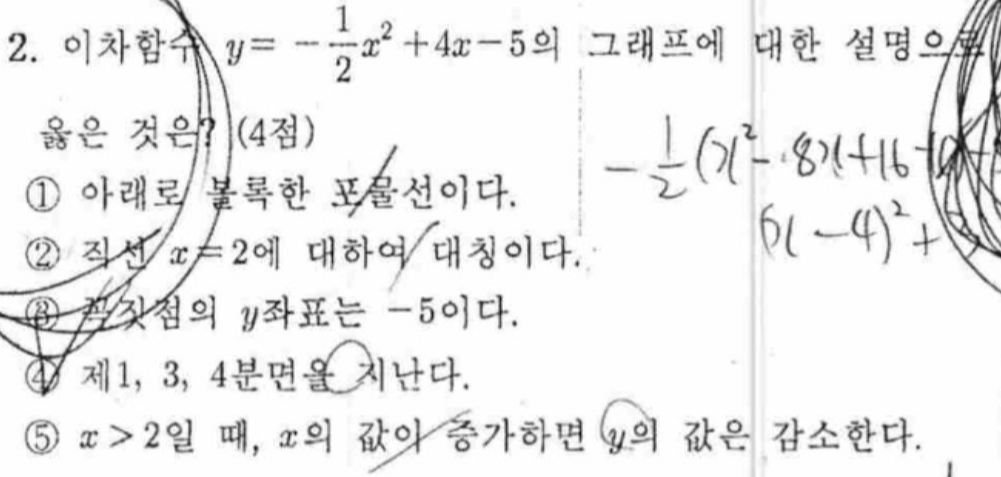 2. 이차함수 y = -\frac{1}{2}x² + 4x - 5의 그래프에 대한 설명으로
옳은 것은? (4점)
-\frac{1}{2}(x² - 8x + 16
① 아래로 볼록한 포물선이다.
(x - 4)² +
② 직선 x = 2에 대하여 대칭이다.
③ 꼭짓점의 y좌표는 -5이다.
④ 제1, 3, 4분면을 지난다.
⑤ x > 2일 때, x의 값이 증가하면 y의 값은 감소한다.